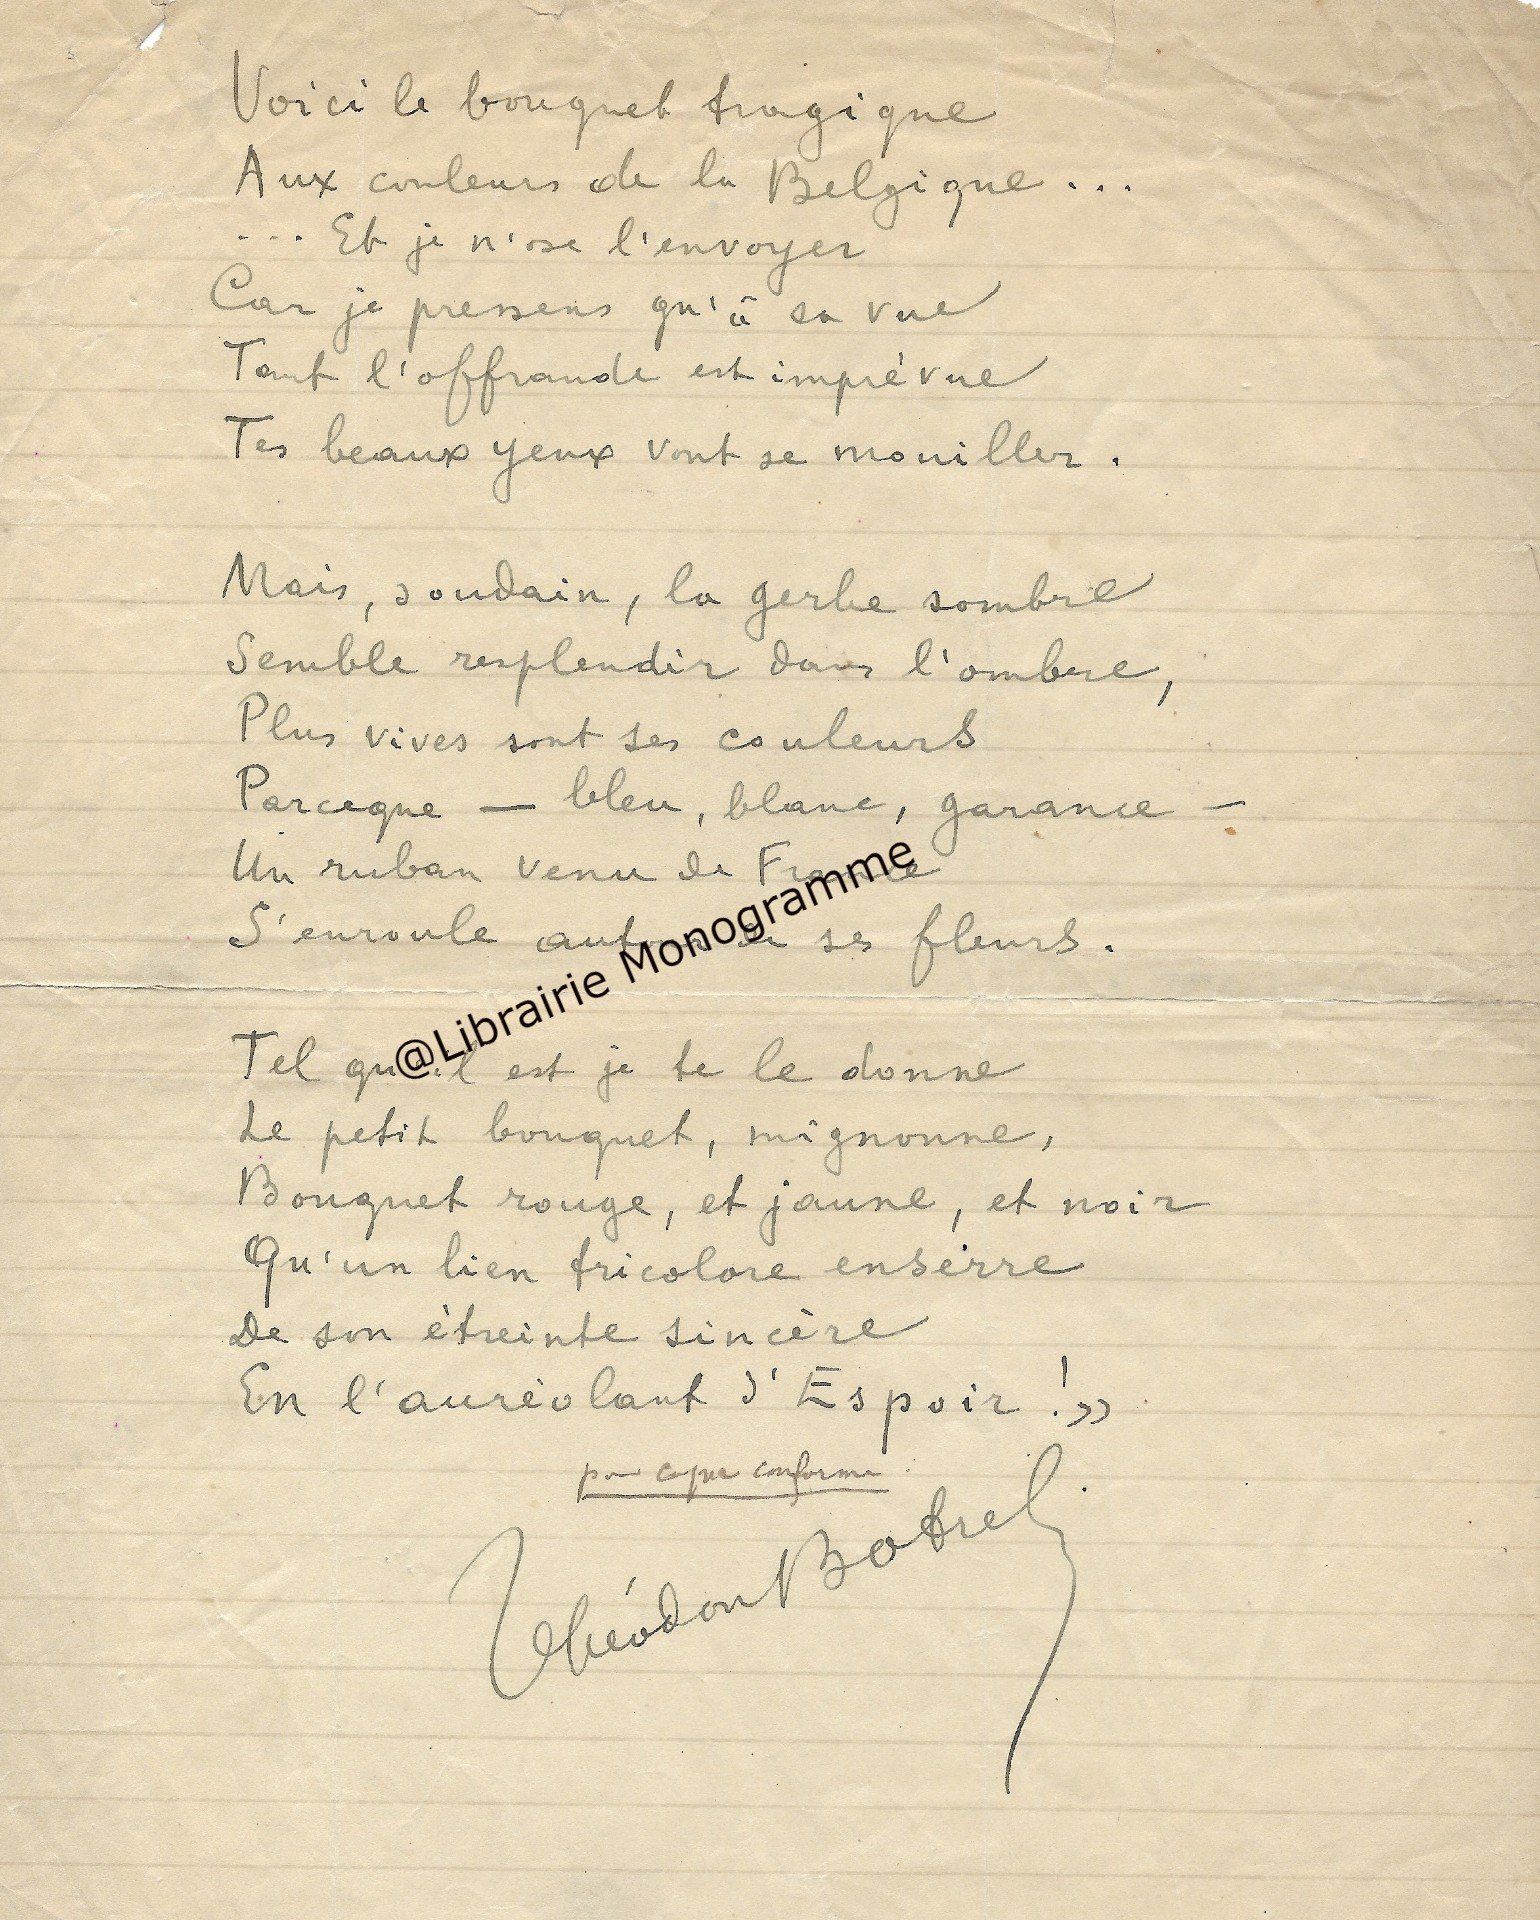 Voici le bouquet tragique
Aux couleurs de la Belgique ...
... Et je n'ose l'envoyer
Car je pressens qu'à sa vue
Tant l'offrande est imprévue
Tes beaux yeux vont se mouiller.
Mais, soudain, la gerbe sombre
Semble resplendir dans l'ombre,
Plus vives sont ses couleurs
Parceque — bleu, blanc, garance —
Un ruban venu de France
S'enroule autour de ses fleurs.
@Librairie Monogramme
Tel qu'il est je te le donne
Le petit bouquet, mignonne,
Bouquet rouge, et jaune, et noir
Qu'un lien tricolore enserre
De son étreinte sincère
En l'auréolant d'Espoir !»
pour copie conforme.
Théodore Botrel